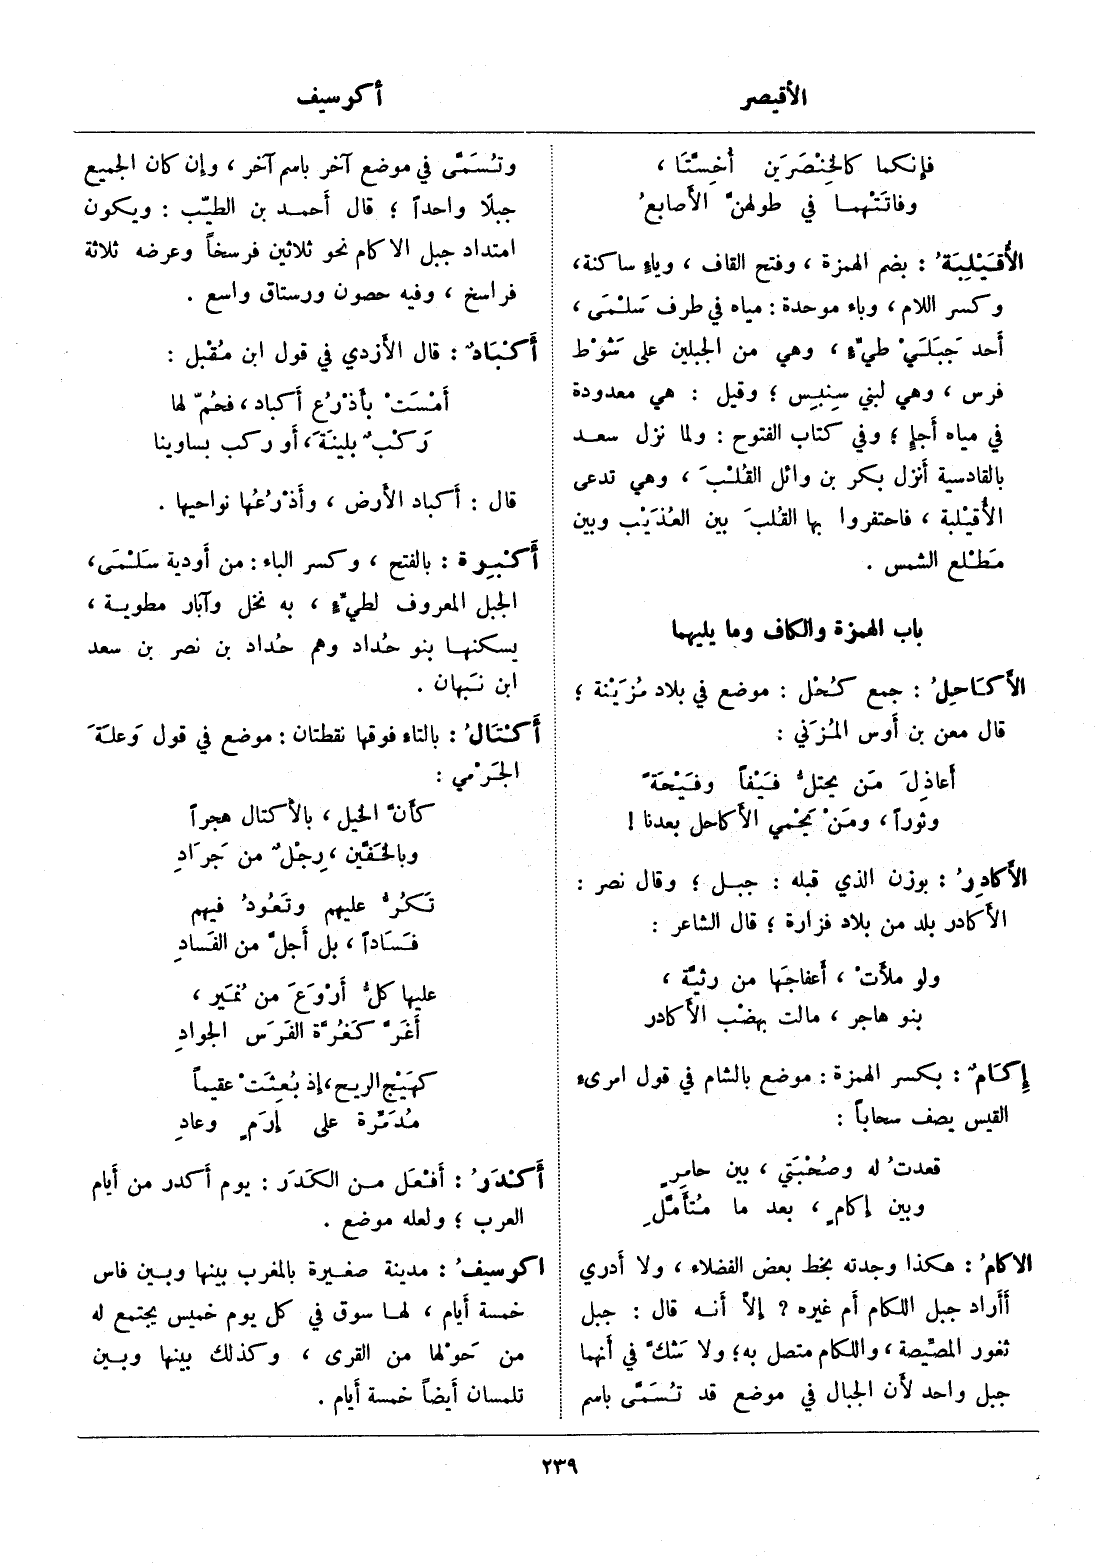 الأقيصر
أكرسيف
فإنكما كالخِنْصَرَين أُخِسَّتَا ،
وفاتَتْهما في طولهنَّ الأصابعُ
الأُقَيْلِبَةُ : بضم الهمزة ، وفتح القاف ، وياءٍ ساكنة،
وكسر اللام ، وباء موحدة : مياه في طرف سَلْمَى ،
أحد جَبَلَيْ طيِّءٍ ، وهي من الجبلين على شَوْط
فرس ، وهي لبني سِنبِس ؛ وقيل : هي معدودة
في مياه أجإٍ ؛ وفي كتاب الفتوح : ولما نزل سعد
بالقادسية أنزل بكر بن وائل القُلْبَ ، وهي تدعى
الأُقَيْلبة ، فاحتفروا بها القُلبَ بين العُذَيْب وبين
مَطْلع الشمس .
باب الهمزة والكاف وما يليهما
الأَكَاحِلُ : جمع كُحْل : موضع في بلاد مُزَيْنة ؛
قال معن بن أوس المُزَني :
أعاذِلَ مَن يحتلُّ فَيْفاً وفَيْحَةً
وثوراً ، ومَنْ يَحْمي الأكاحل بعدنا !
الأكادِرُ : بوزن الذي قبله : جبل ؛ وقال نصر :
الأكادر بلد من بلاد فزارة ؛ قال الشاعر :
ولو ملأتْ ، أعفاجَها من رثيَّة ،
بنو هاجر ، مالت بهضْب الأكادر
إِكَامٌ : بكسر الهمزة : موضع بالشام في قول امرىء
القيس يصف سحاباً :
قعدتُ له وصُحْبَتي ، بين حامرٍ
وبين إكامٍ ، بعد ما مُتأَمَّلِ
الاكامُ : هكذا وجدته بخط بعض الفضلاء ، ولا أدري
أأراد جبل اللكام أم غيره ? إلاّ أنه قال : جبل
ثغور المصِّيصة ، واللكام متصل به؛ ولا شكَّ في أنهما
جبل واحد لأن الجبال في موضع قد تُسَمَّى باسم
وتُسَمَّى في موضع آخر باسم آخر ، وإن كان الجميع
جبلًا واحداً ؛ قال أحمد بن الطيّب : ويكون
امتداد جبل الاكام نحو ثلاثين فرسخاً وعرضه ثلاثة
فراسخ ، وفيه حصون ورستاق واسع .
أَكْبَادٌ : قال الأزدي في قول ابن مُقْبل :
أمْسَتْ بأذْرُع أكباد ، فحُمّ لها
رَكْبٌ بلينَةَ ، أو ركب بساوينا
قال : أكباد الأرض ، وأذْرُعُها نواحيها .
أَكْبِرة : بالفتح ، وكسر الباء : من أودية سَلْمَى،
الجبل المعروف لطيِّءٍ ، به نخل وآبار مطوية ،
يسكنها بنو حُداد وهم حُداد بن نصر بن سعد
ابن نَبهان .
أَكْتَالُ : بالتاء فوقها نقطتان : موضع في قول وَعلَةَ
الجَرْمي :
كأنَّ الخيل ، بالأكتال هجراً
وبالخَفَّين ، رِجْلٌ من جَرَادِ
تَكُرُّ عليهم وتَعُودُ فيهم
فَسَاداً ، بل أجلَّ من الفَسادِ
عليها كلُّ أَرْوَعَ من نُمَيْر ،
أغَرَّ كَغُرَّة الفَرَس الجوادِ
كهَيْج الريح ، إذ بُعِثَتْ عقيماً
مُدَمِّرة على إرَمٍ وعادِ
أَكْدَرُ : أفْعَل من الكَدَر : يوم أكدر من أيام
العرب ؛ ولعله موضع .
اكرسيفُ : مدينة صغيرة بالمغرب بينها وبين فاس
خمسة أيام ، لها سوق في كل يوم خميس يجتمع له
من حَوْلها من القرى ، وكذلك بينها وبين
تلمسان أيضاً خمسة أيام .
٢٣٩